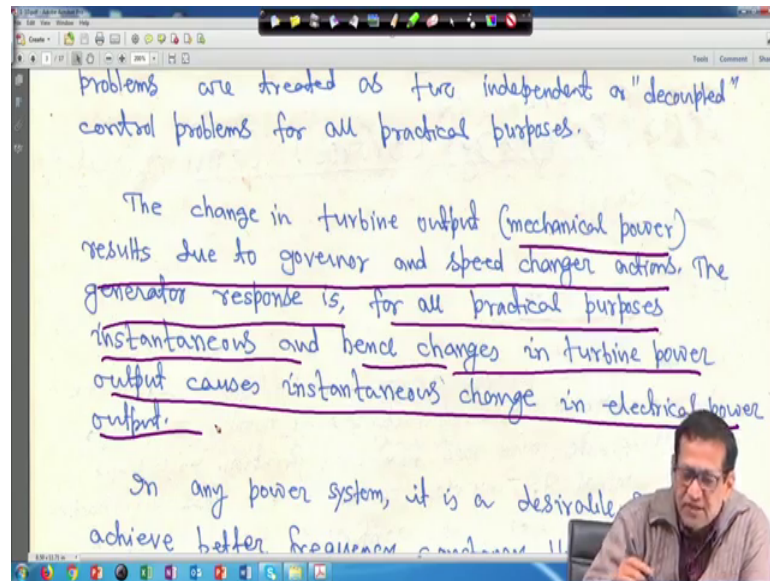 Tools
Comment
problems are treated as two independent or "decoupled"
control problems for all practical purposes.
The change in turbine output (mechanical power)
results due to governor and speed changer actions. The
generator response is, for all practical purposes
instantaneous and hence changes in turbine power
output causes instantaneous change in electrical power
output.
In any power system, it is a desirable
achieve better frequency constancy